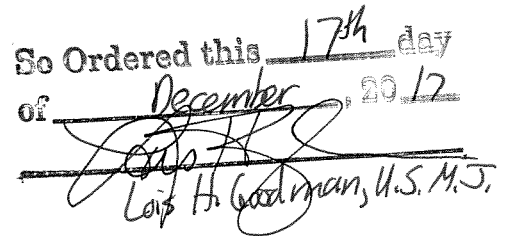 So Ordered this 17th day
of December, 2012
Lois H. Goodman, U.S.M.J.